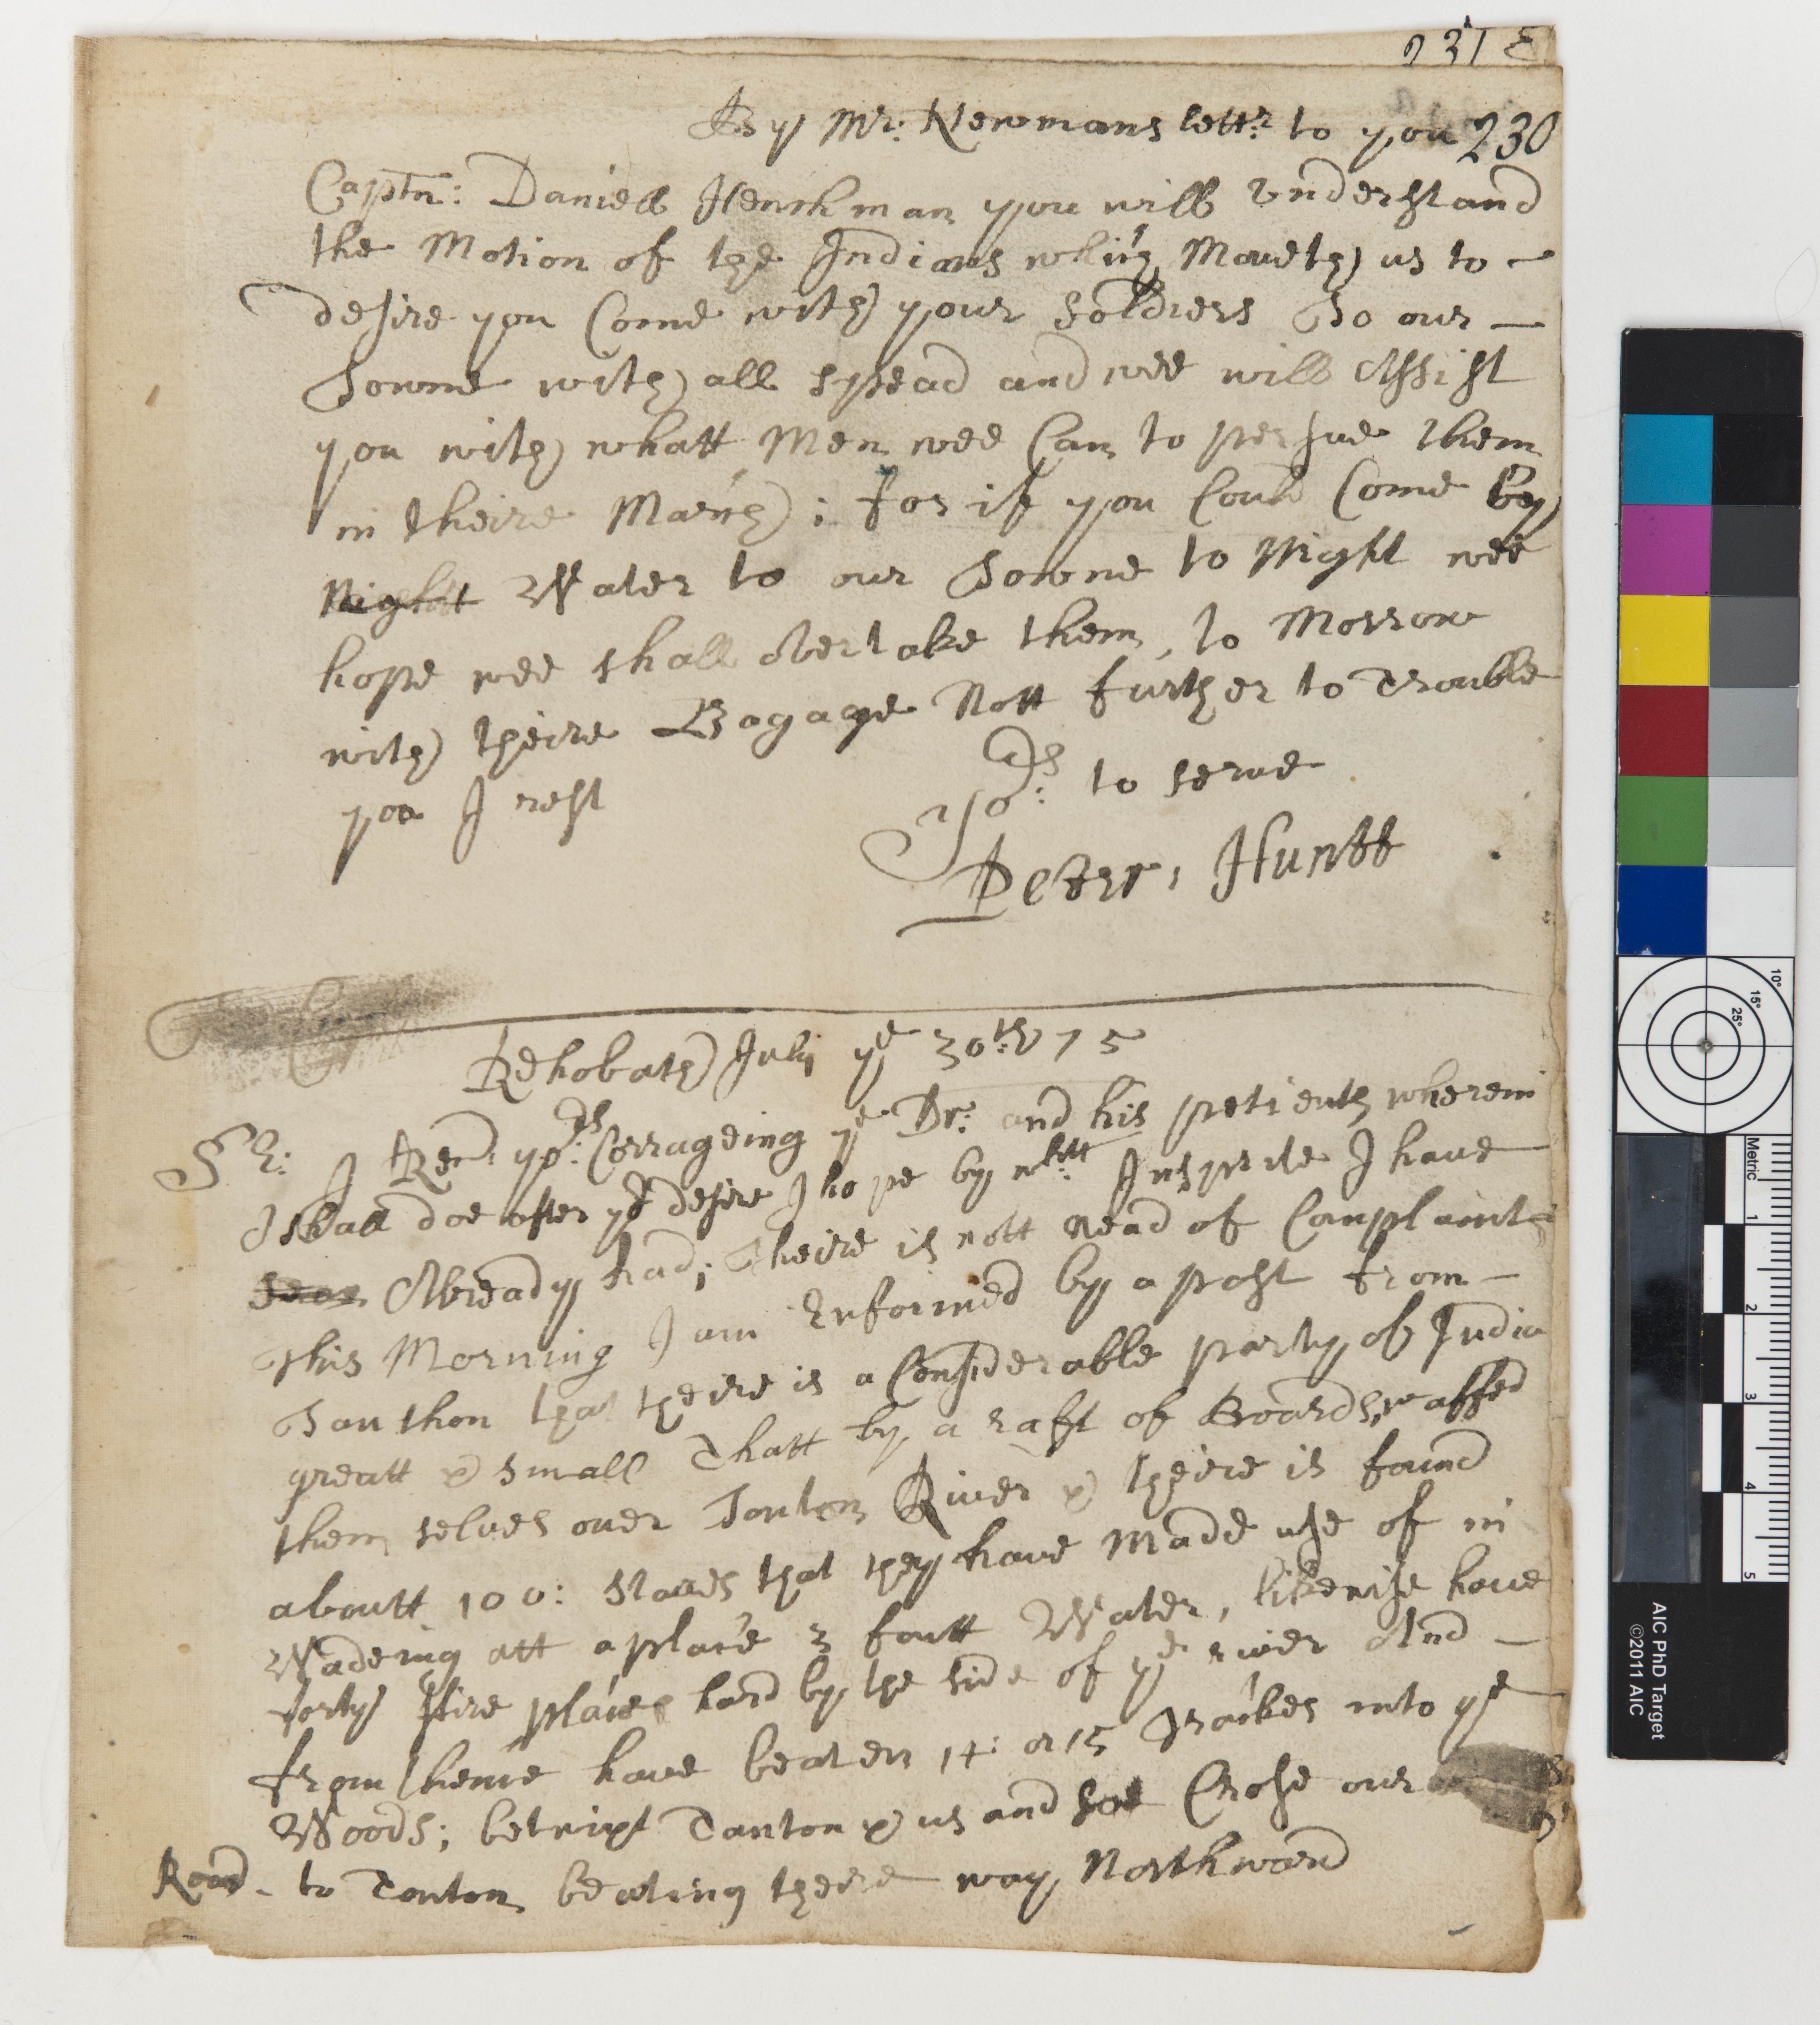 231
By Mr: Newmans lettr: to you 230
Captn: Daniell Henchman you will Understand
the Motion of the Indians which Moveth us to
desire you Come with your Soldiers To our
Towne with all spead and wee will Assist
you with whatt Men wee Can to persue them
in theire March; for if you Could Come by
Night Water to our Towne to Night wee
hope wee shall overtake them, to Morrow
with theire Bagage Nott further to Trouble
you I rest
yors: to serve
Peter, Huntt
Rehobath July ye 30th: 75
Sr: I Recd: yors: Corrageing ye Dr: and his petients wherein
I shall doe after yr desire I hope by whtt: I have
Already had; Theire is nott nead of Complaint
This Morning I am Enformed by a post from
Taunthon that theire is a Considerable party of India
greatt & small Thatt by a raft of Boards, waffed
them selves over Tonton River & theire is found
aboutt 100: staves that they have Made use of in
Wadeing att a place 3 foutt Water, likewise have
forty Fire places hard by the side of ye river And
from thence have beaten 14: or 15 Trackes into ye
Woods; betwixt Tanton & us and Crose our
Road to Tonton beating theire way Northward